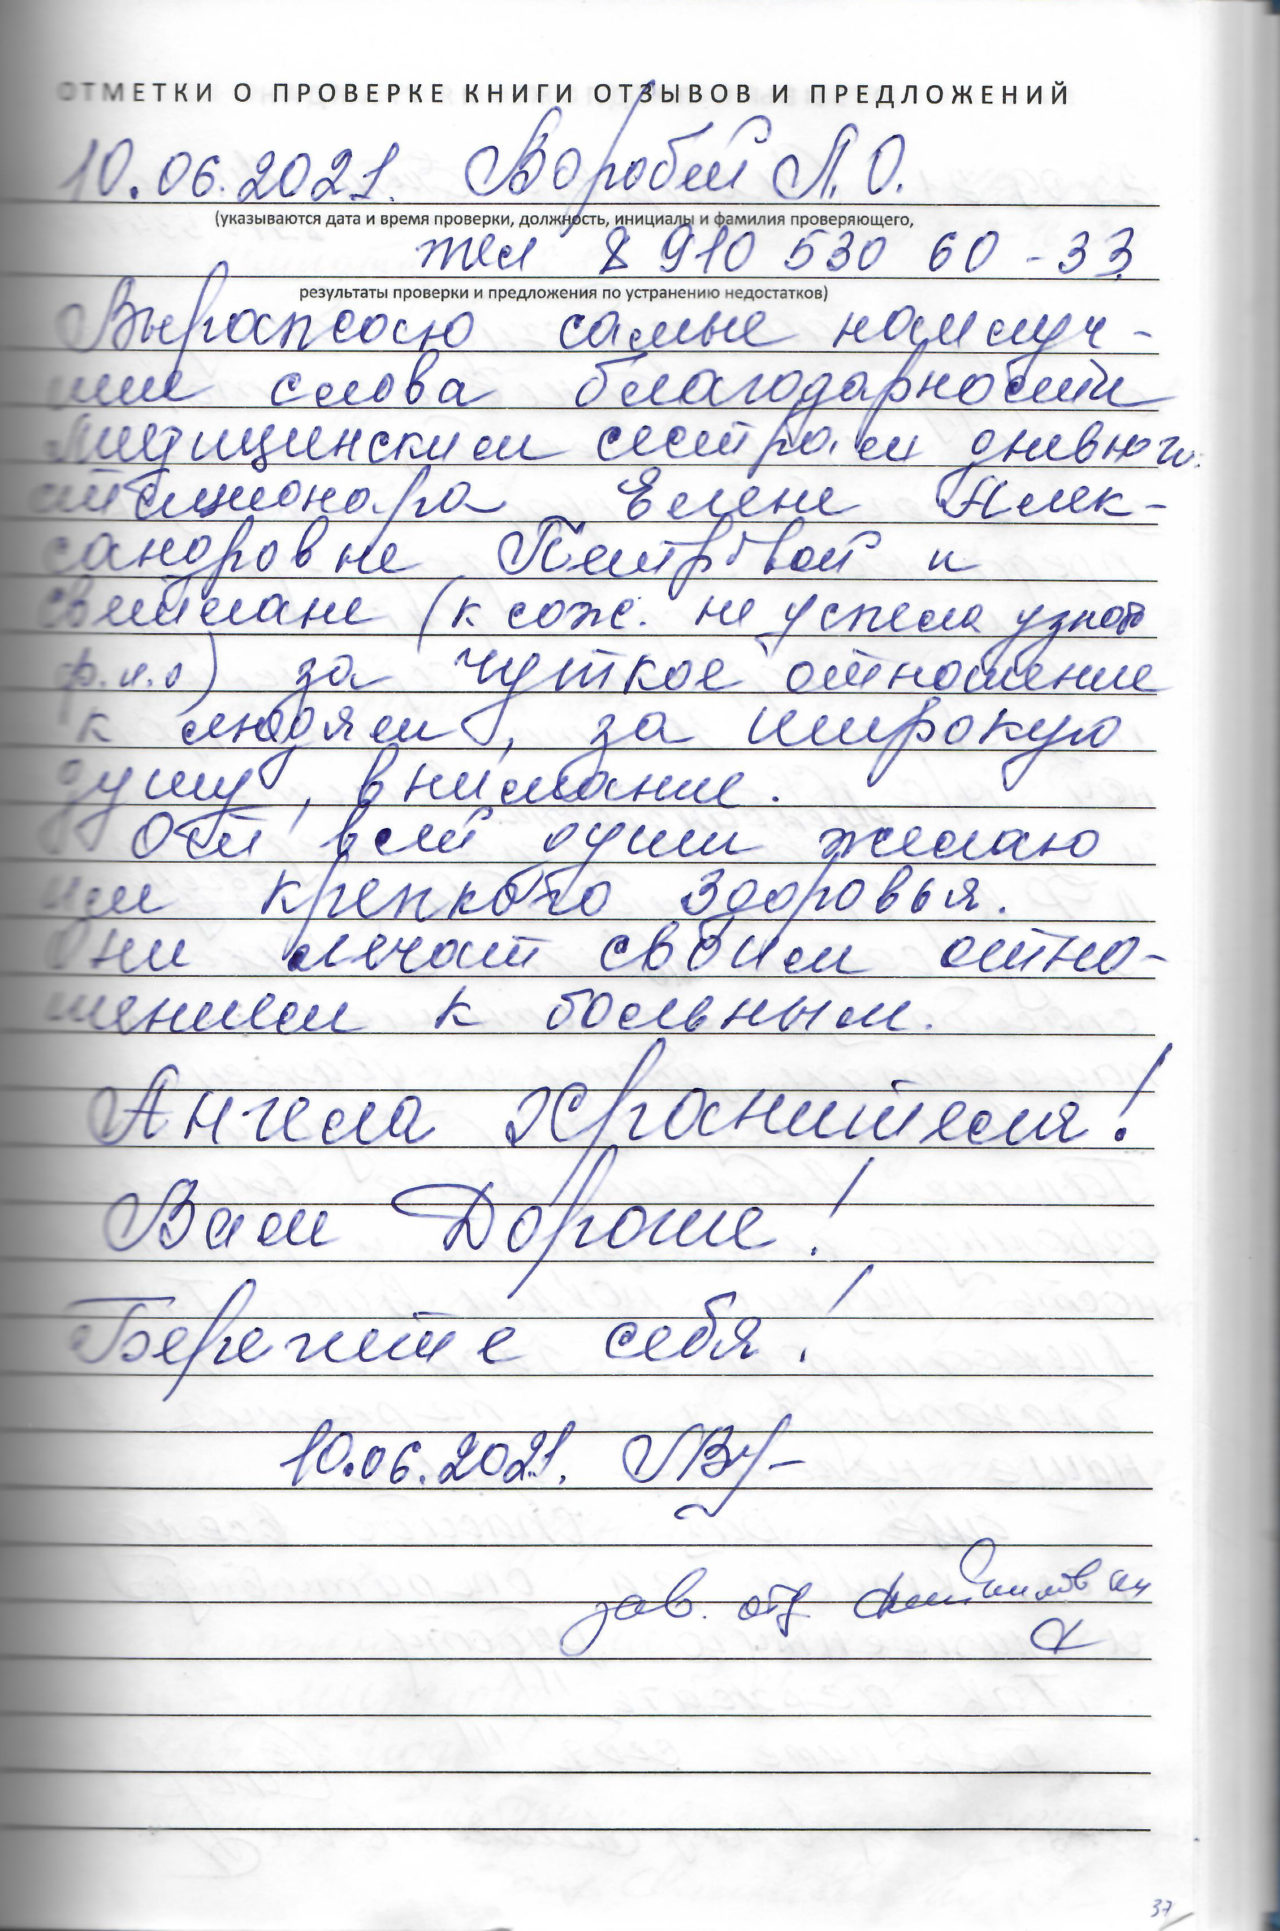 ОТМЕТКИ О ПРОВЕРКЕ КНИГИ ОТЗЫВОВ И ПРЕДЛОЖЕНИЙ
10.06.2021. Воробей Л. О.
(указываются дата и время проверки, должность, инициалы и фамилия проверяющего,
тел 8 910 530 60 - 33.
результаты проверки и предложения по устранению недостатков)
Выражаю самые наилуч-
шие слова благодарности
Медицинским сестрам дневного
стационара Елене Алек-
сандровне Петровой и
Светлане (к сож. не успела узнать
ф.и.о) за чуткое отношение
к людям, за широкую
душу, внимание.
От всей души желаю
им крепкого здоровья.
Они лечат своим отно-
шением к больным.
Ангела хранителя!
Вам Дорогие!
Берегите себя!
10.06.2021.
зав. отд
37